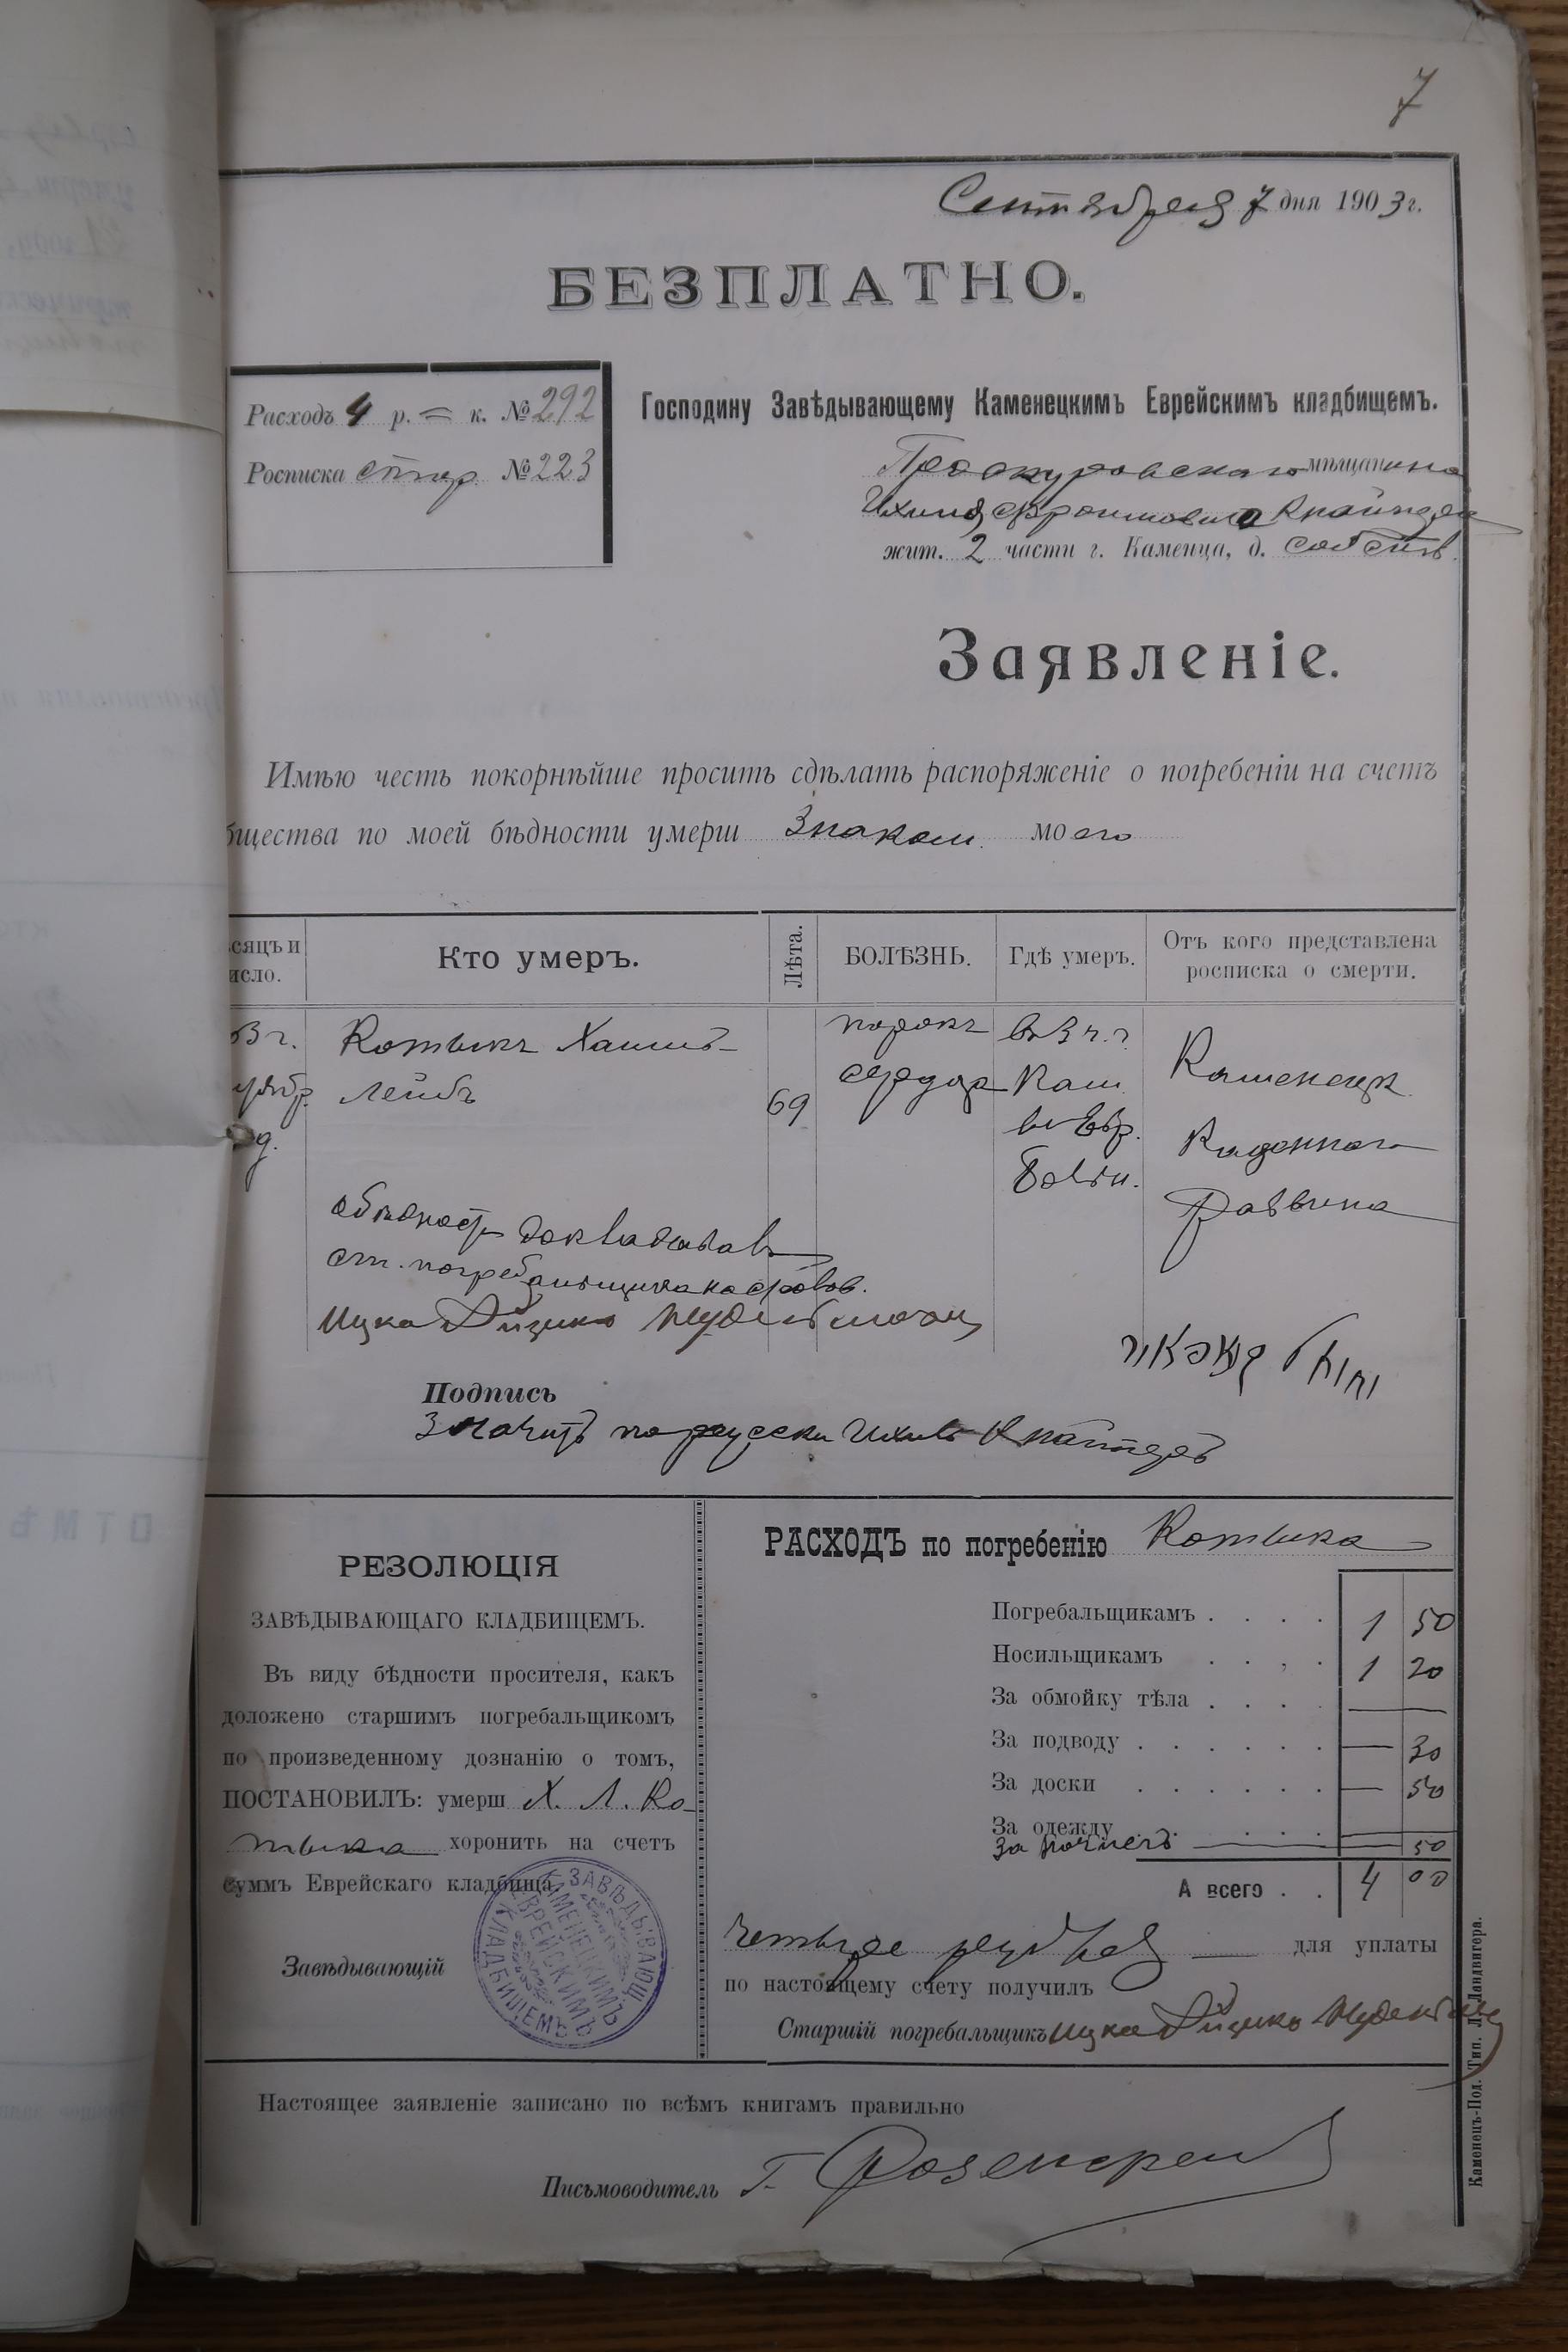 7
Сентября 7 дня 1903 г.
БЕЗПЛАТНО.
Расходъ 4 р. = к. № 292
Росписка стар. № 223
Господину Завѣдывающему Каменецкимъ Еврейскимъ кладбищемъ.
Проскуровскаго мѣщанина
Ихиля
жит. 2 части г. Каменца, д. собств.
Заявленіе.
Имѣю честь покорнѣйше просить сдѣлать распоряженіе о погребеніи на счетъ
бщества по моей бѣдности умерш Знаком. моего
сяцъ и
исло.
Кто умеръ.
Лѣта.
БОЛѢЗНЬ.
Гдѣ умеръ.
Отъ кого представлена
росписка о смерти.
03 г. Котыкъ Хаимъ- порокъ въ 3 ч. г.
Лейбъ 69 сердца Кам. Каменецк.
въ Евр. Казеннаго
больн. Раввина
о бѣдности докладывалъ
ст. погребальщика на словъ.
Ицка
Подпись
Значитъ по русски Ихиль
РЕЗОЛЮЦІЯ
ЗАВѢДЫВАЮЩАГО КЛАДБИЩЕМЪ.
Въ виду бѣдности просителя, какъ
доложено старшимъ погребальщикомъ
по произведенному дознанію о томъ,
ПОСТАНОВИЛЪ: умерш Х. Л. Ко-
тыка хоронить на счетъ
суммъ Еврейскаго кладбища.
Завѣдывающій
ЗАВѢДЫВАЮЩ.
КАМЕНЕЦКИМЪ
ЕВРЕЙСКИМЪ
КЛАДБИЩЕМЪ
РАСХОДЪ по погребенію Котыка
Погребальщикамъ . . . . 1 50
Носильщикамъ . . , . 1 20
За обмойку тѣла . . . . —
За подводу . . . . . . — 30
За доски . . . . . — 50
За одежду . . . . . —
За — 50
А всего . . 4 00
четыре рубля — для уплаты
по настоящему счету получилъ
Старшій погребальщикъ Ицка
Настоящее заявленіе записано по всѣмъ книгамъ правильно
Письмоводитель Г. Розенгрен
Каменецъ-Под. Тип. Л. Ландвигера.